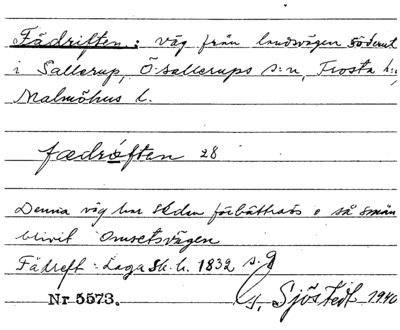 Fädriften: väg från landsvägen söderut
i Sallerup, Ö. Sallerups s:n, Frosta h:d
Malmöhus l.
fædrǫ́ften 28
Denna väg har sedan förbättrats o så små
blivit Omsetsvägen
Fädreft: Laga Sk. h. 1832 s. 9
Nr 5573.
G. Sjöstedt 1940